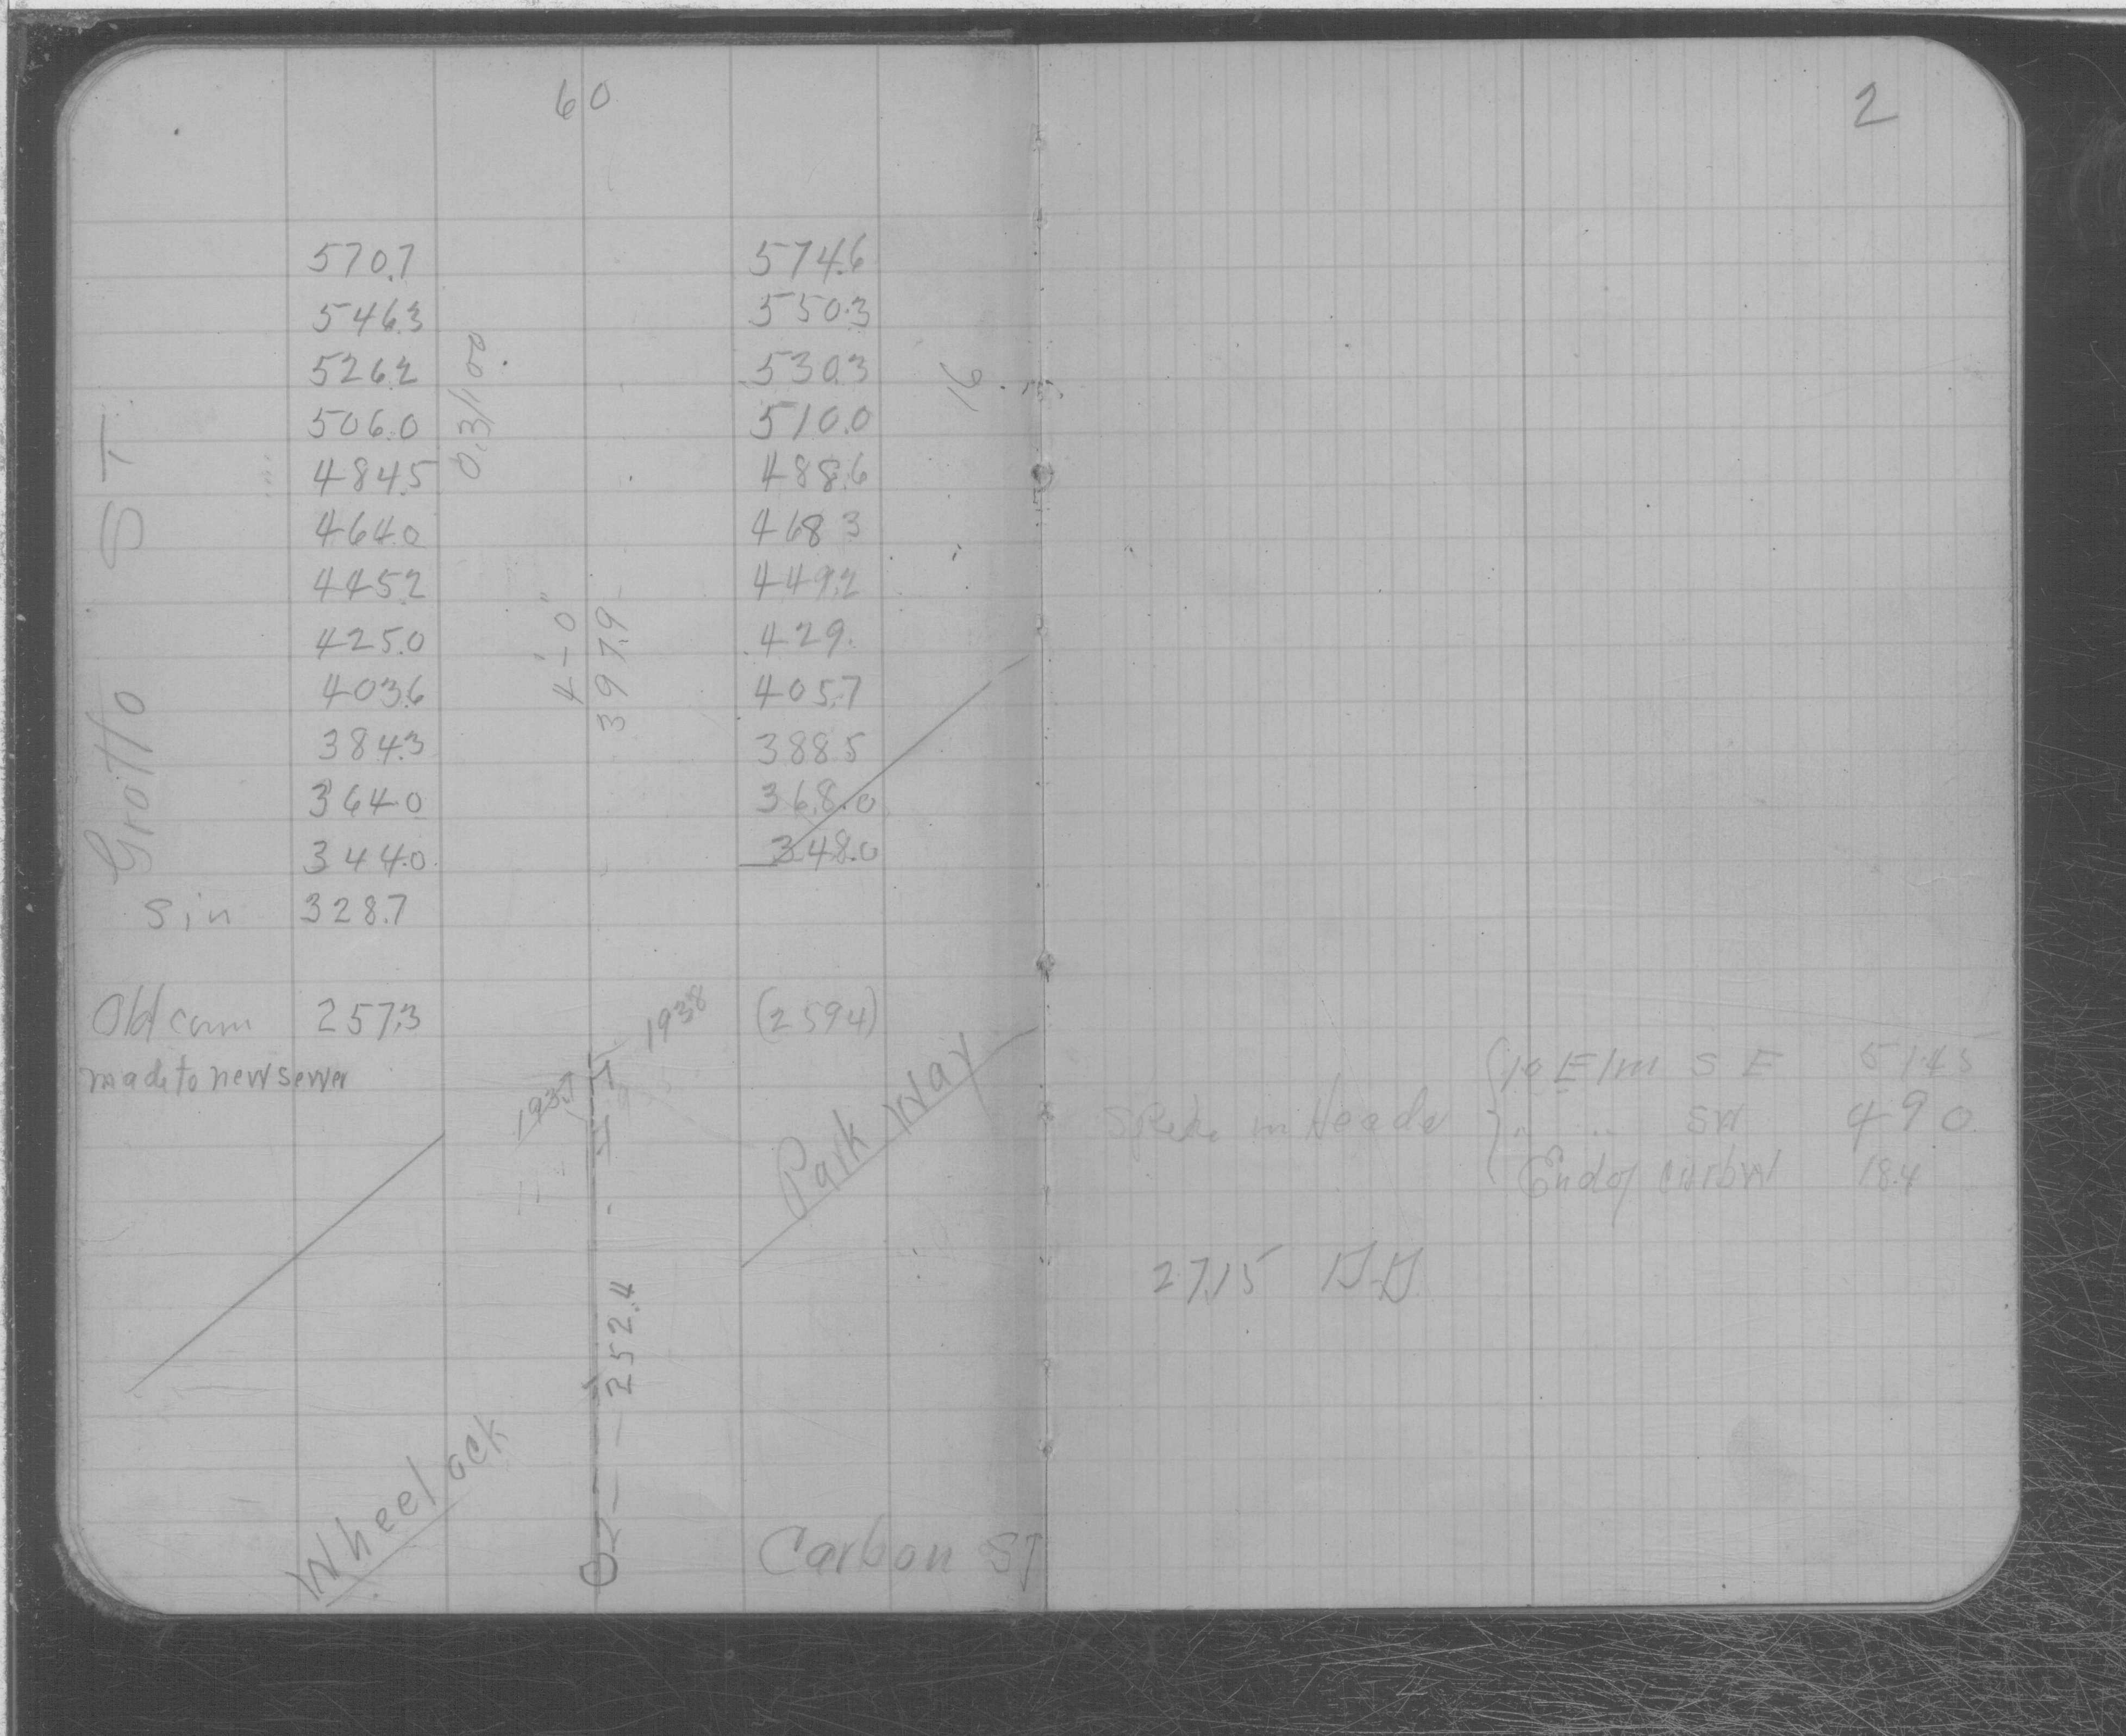 60
2
570.7 574.6
546.3 550.3
526.2 530.3
506.0 510.0
484.5 488.6
464.0 468.3
445.2 449.2
425.0 429.
403.6 405.7
384.3 388.5
364.0 368.0
344.0 348.0
Sin 328.7
Old conn 257.3 (259.4)
made to new sewer
Grotto ST
0.3/100
16
4'-0"
397.9
1937
1938
Park Way
252.4
Wheelock
Carbon ST
Spike in Heads
10 Elm S E 51.45
" " SW 49.0
End of curb W 18.4
27.15